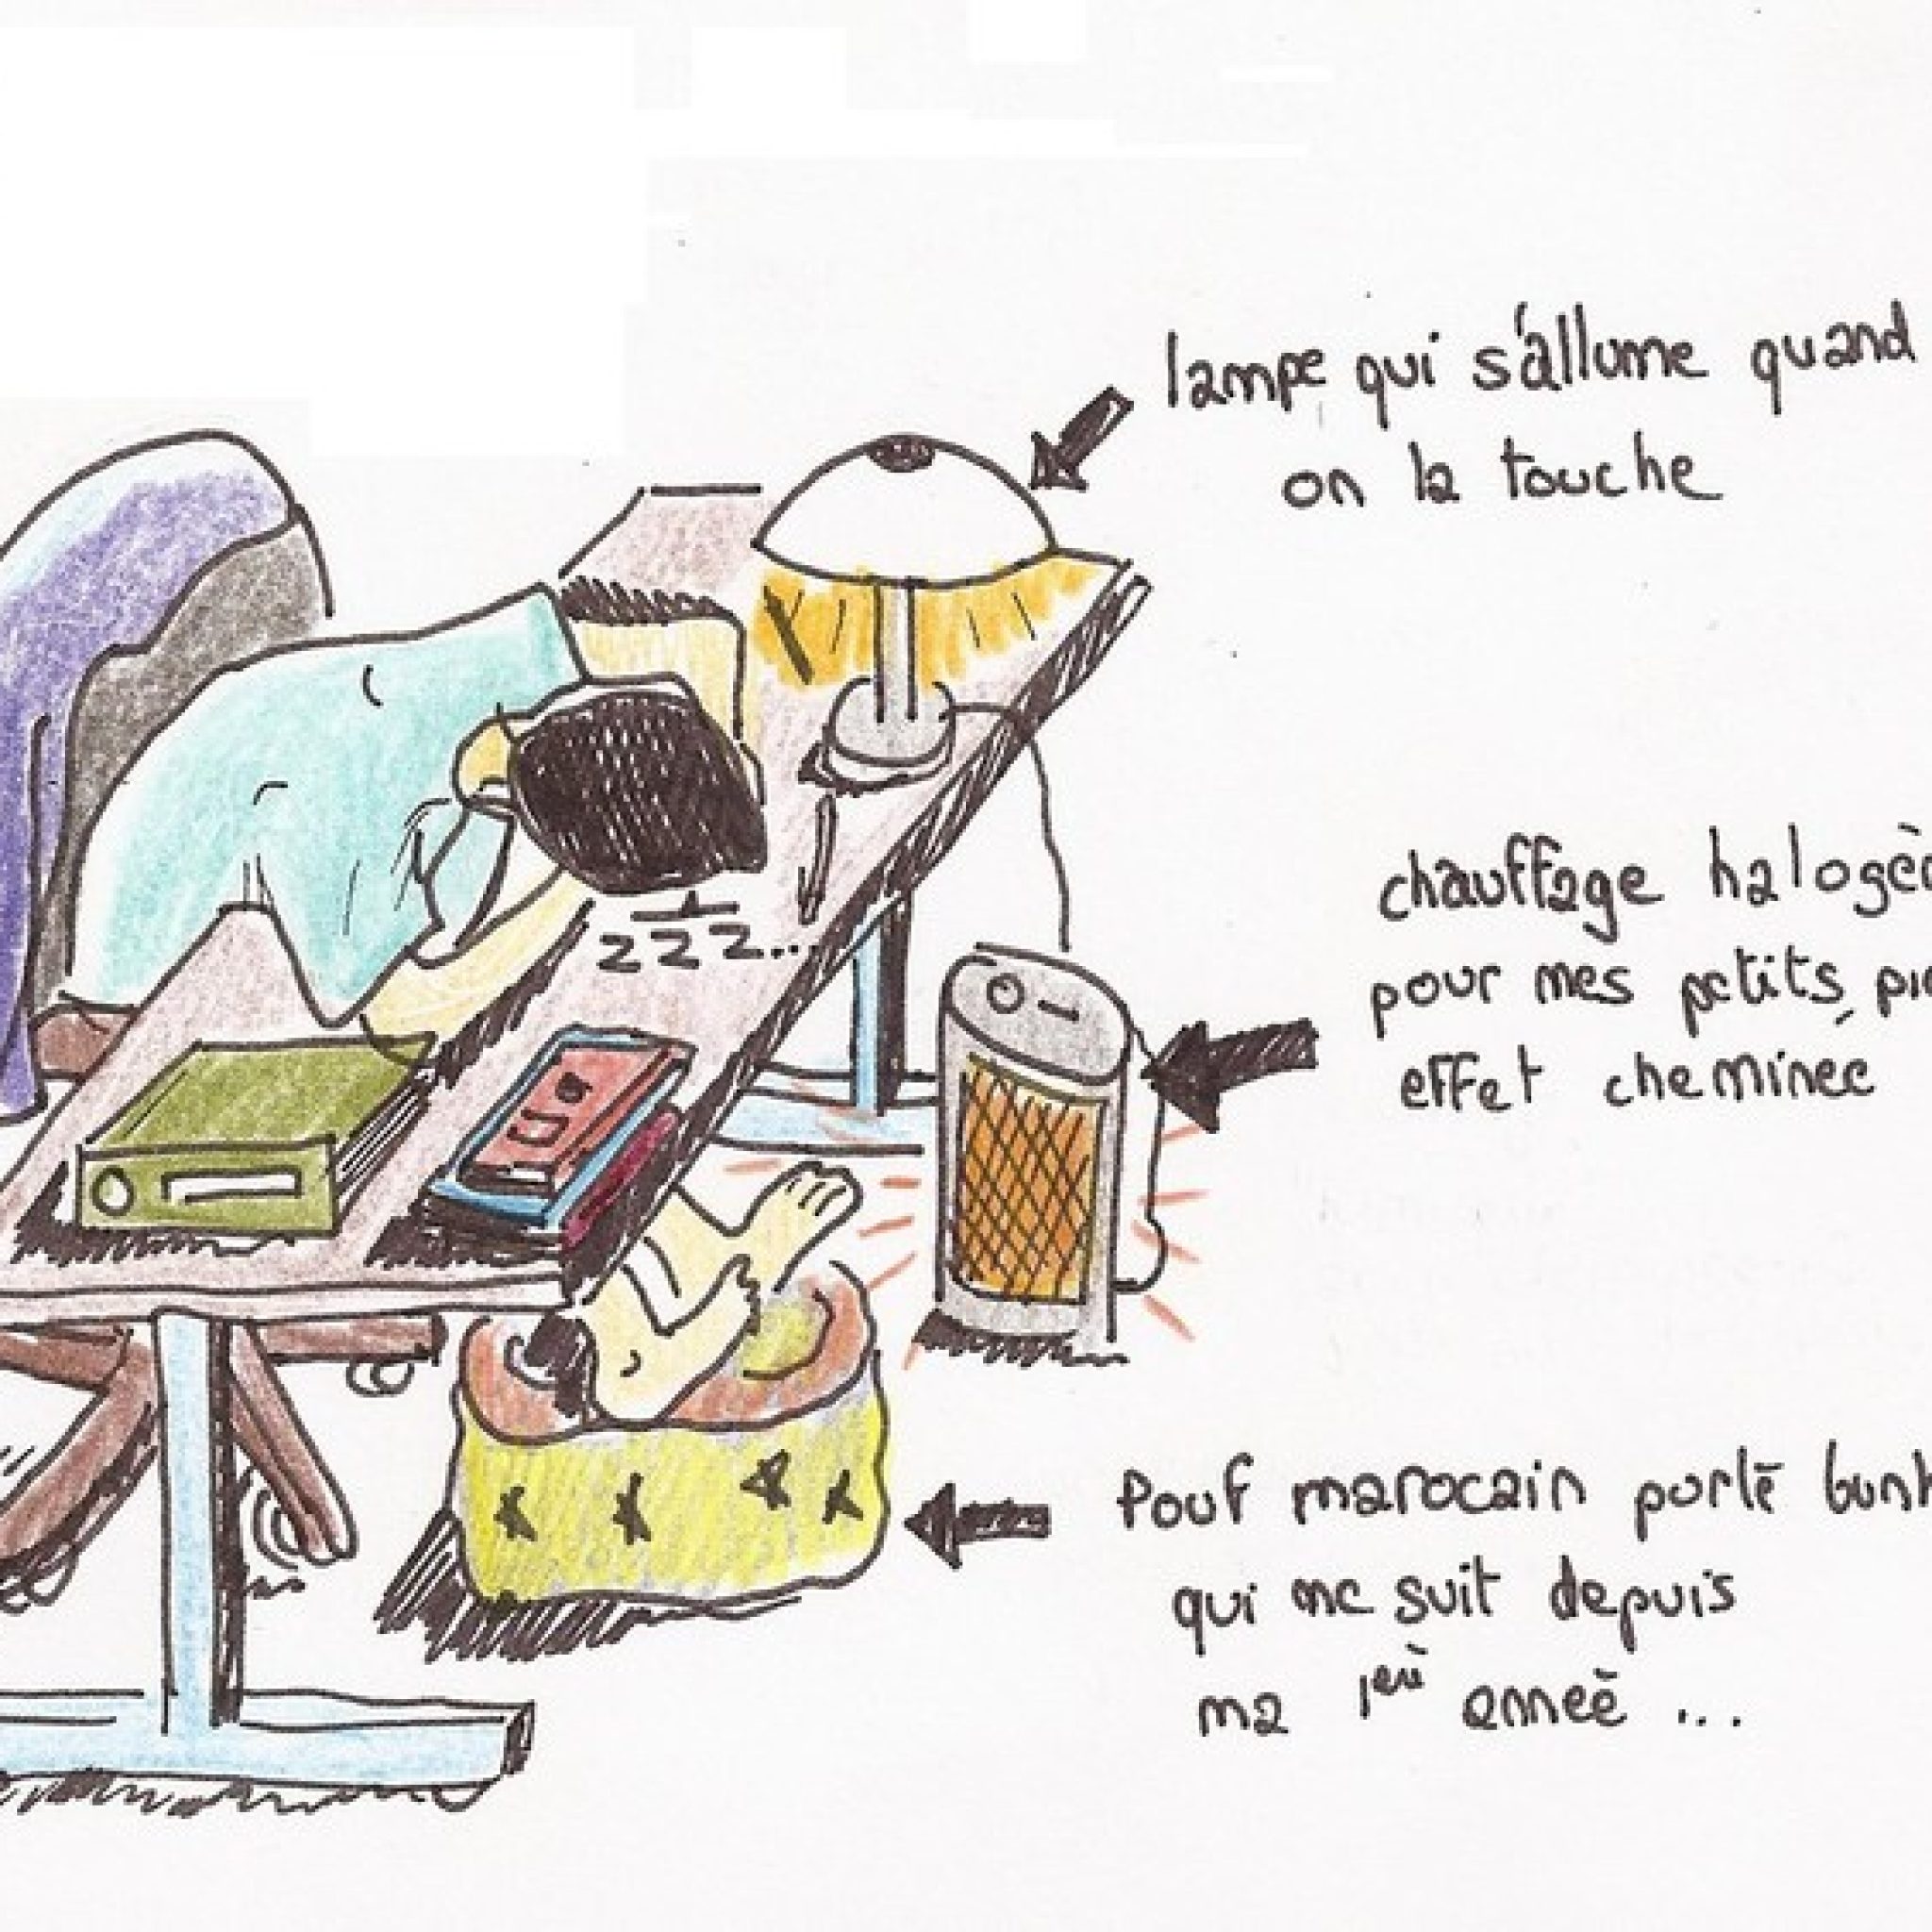 lampe qui s'allume quand
on la touche
zzz...
chauffage
pour mes petits
effet cheminée
Pouf marocain porte
qui me suit depuis
ma 1ère année ...